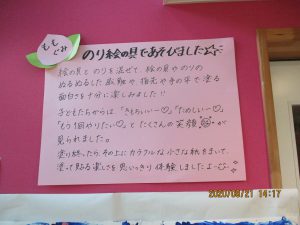 ももぐみ
のり絵の具であそびました
絵の具とのりを混ぜて、絵の具やのりの
ぬるぬるした感触や指先や手の平で塗る
面白さを十分に楽しみました!
子どもたちからは「きもちいいー♡」「たのしいー♡」
「もう1回やりたい♡」とたくさんの笑顔が
見られました。
塗り終ったら、その上にカラフルな小さな紙をまいて、
塗って貼る楽しさを思いっきり体験しましたよー
2020/08/21 14:17